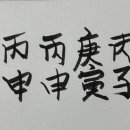 丙子
庚寅
丙申
丙申